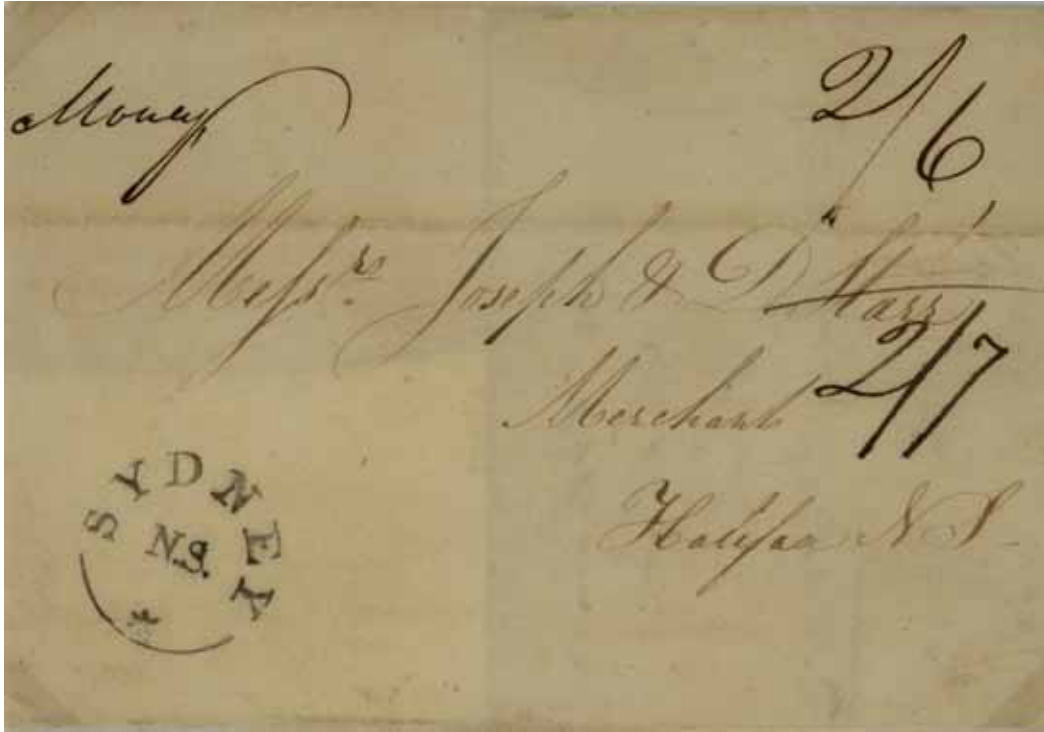 Money
2/6
Messrs Joseph & D Starr
2/7
Merchants
Halifax N S
SYDNEY
N.S.